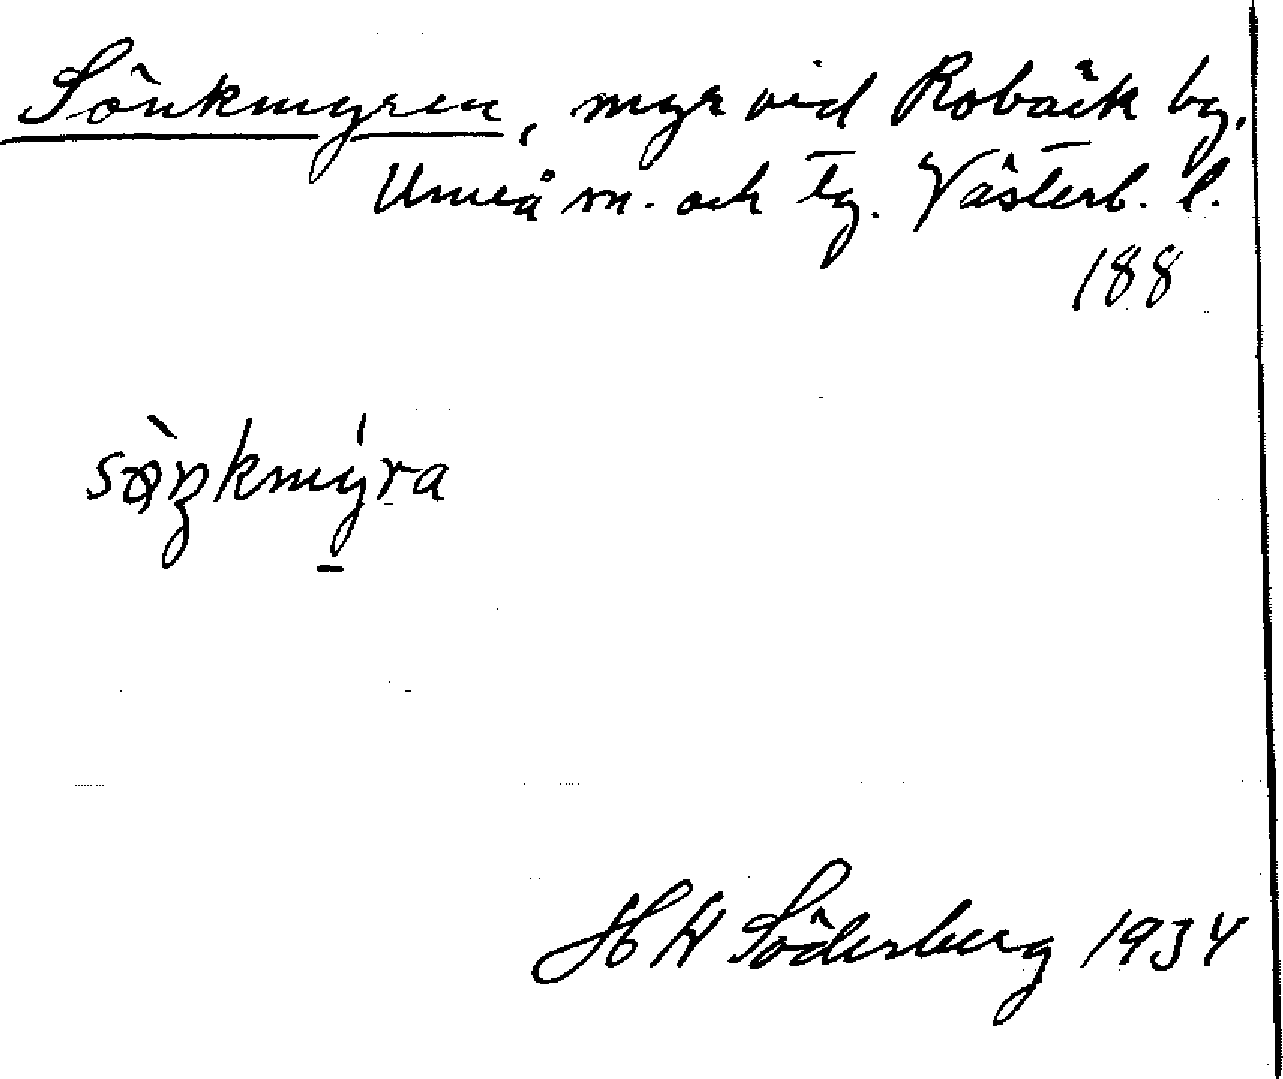 Sönkmyren, myr vid Robäck by,
Umeå sn. och tg. Västerb. l.
188
sø̀ŋkmý̠ra
H W Söderberg 1934